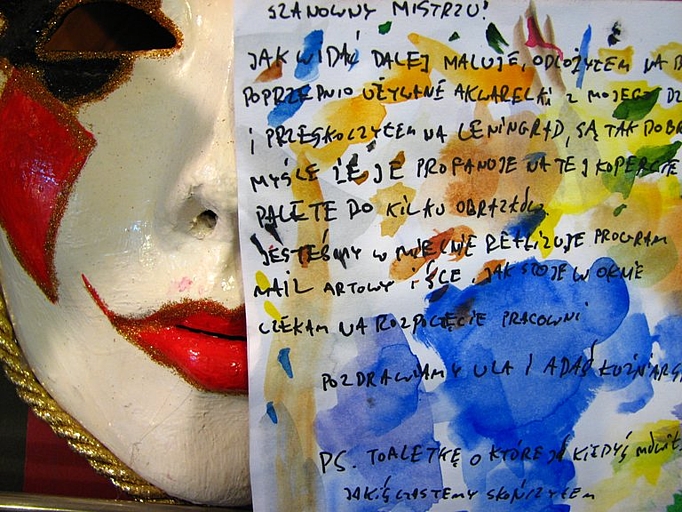 SZANOWNY MISTRZU!
JAK WIDAĆ DALEJ MALUJĘ, ODŁOŻYŁEM NA B
POPRZEDNIO UŻYWANE AKWARELKI Z MOJEGO DZ
I PRZESKOCZYŁEM NA LENINGRAD, SĄ TAK DOBR
MYŚLĘ ŻE JE PROFANUJĘ NA TEJ KOPERCIE
PALETĘ DO KILKU OBRAZKÓW.
JESTEŚMY W MIELNIE REALIZUJĘ PROGRAM
MAIL ARTOWY I
JAK STOJĘ W OKNIE
CZEKAM NA ROZPOCZĘCIE PRACOWNI
POZDRAWIAMY ULA I ADAŚ KUŹNIARS
PS. TOALETKĘ O KTÓREJ JA KIEDYŚ MÓWIŁ
JAKIŚ CZAS TEMU SKOŃCZYŁEM